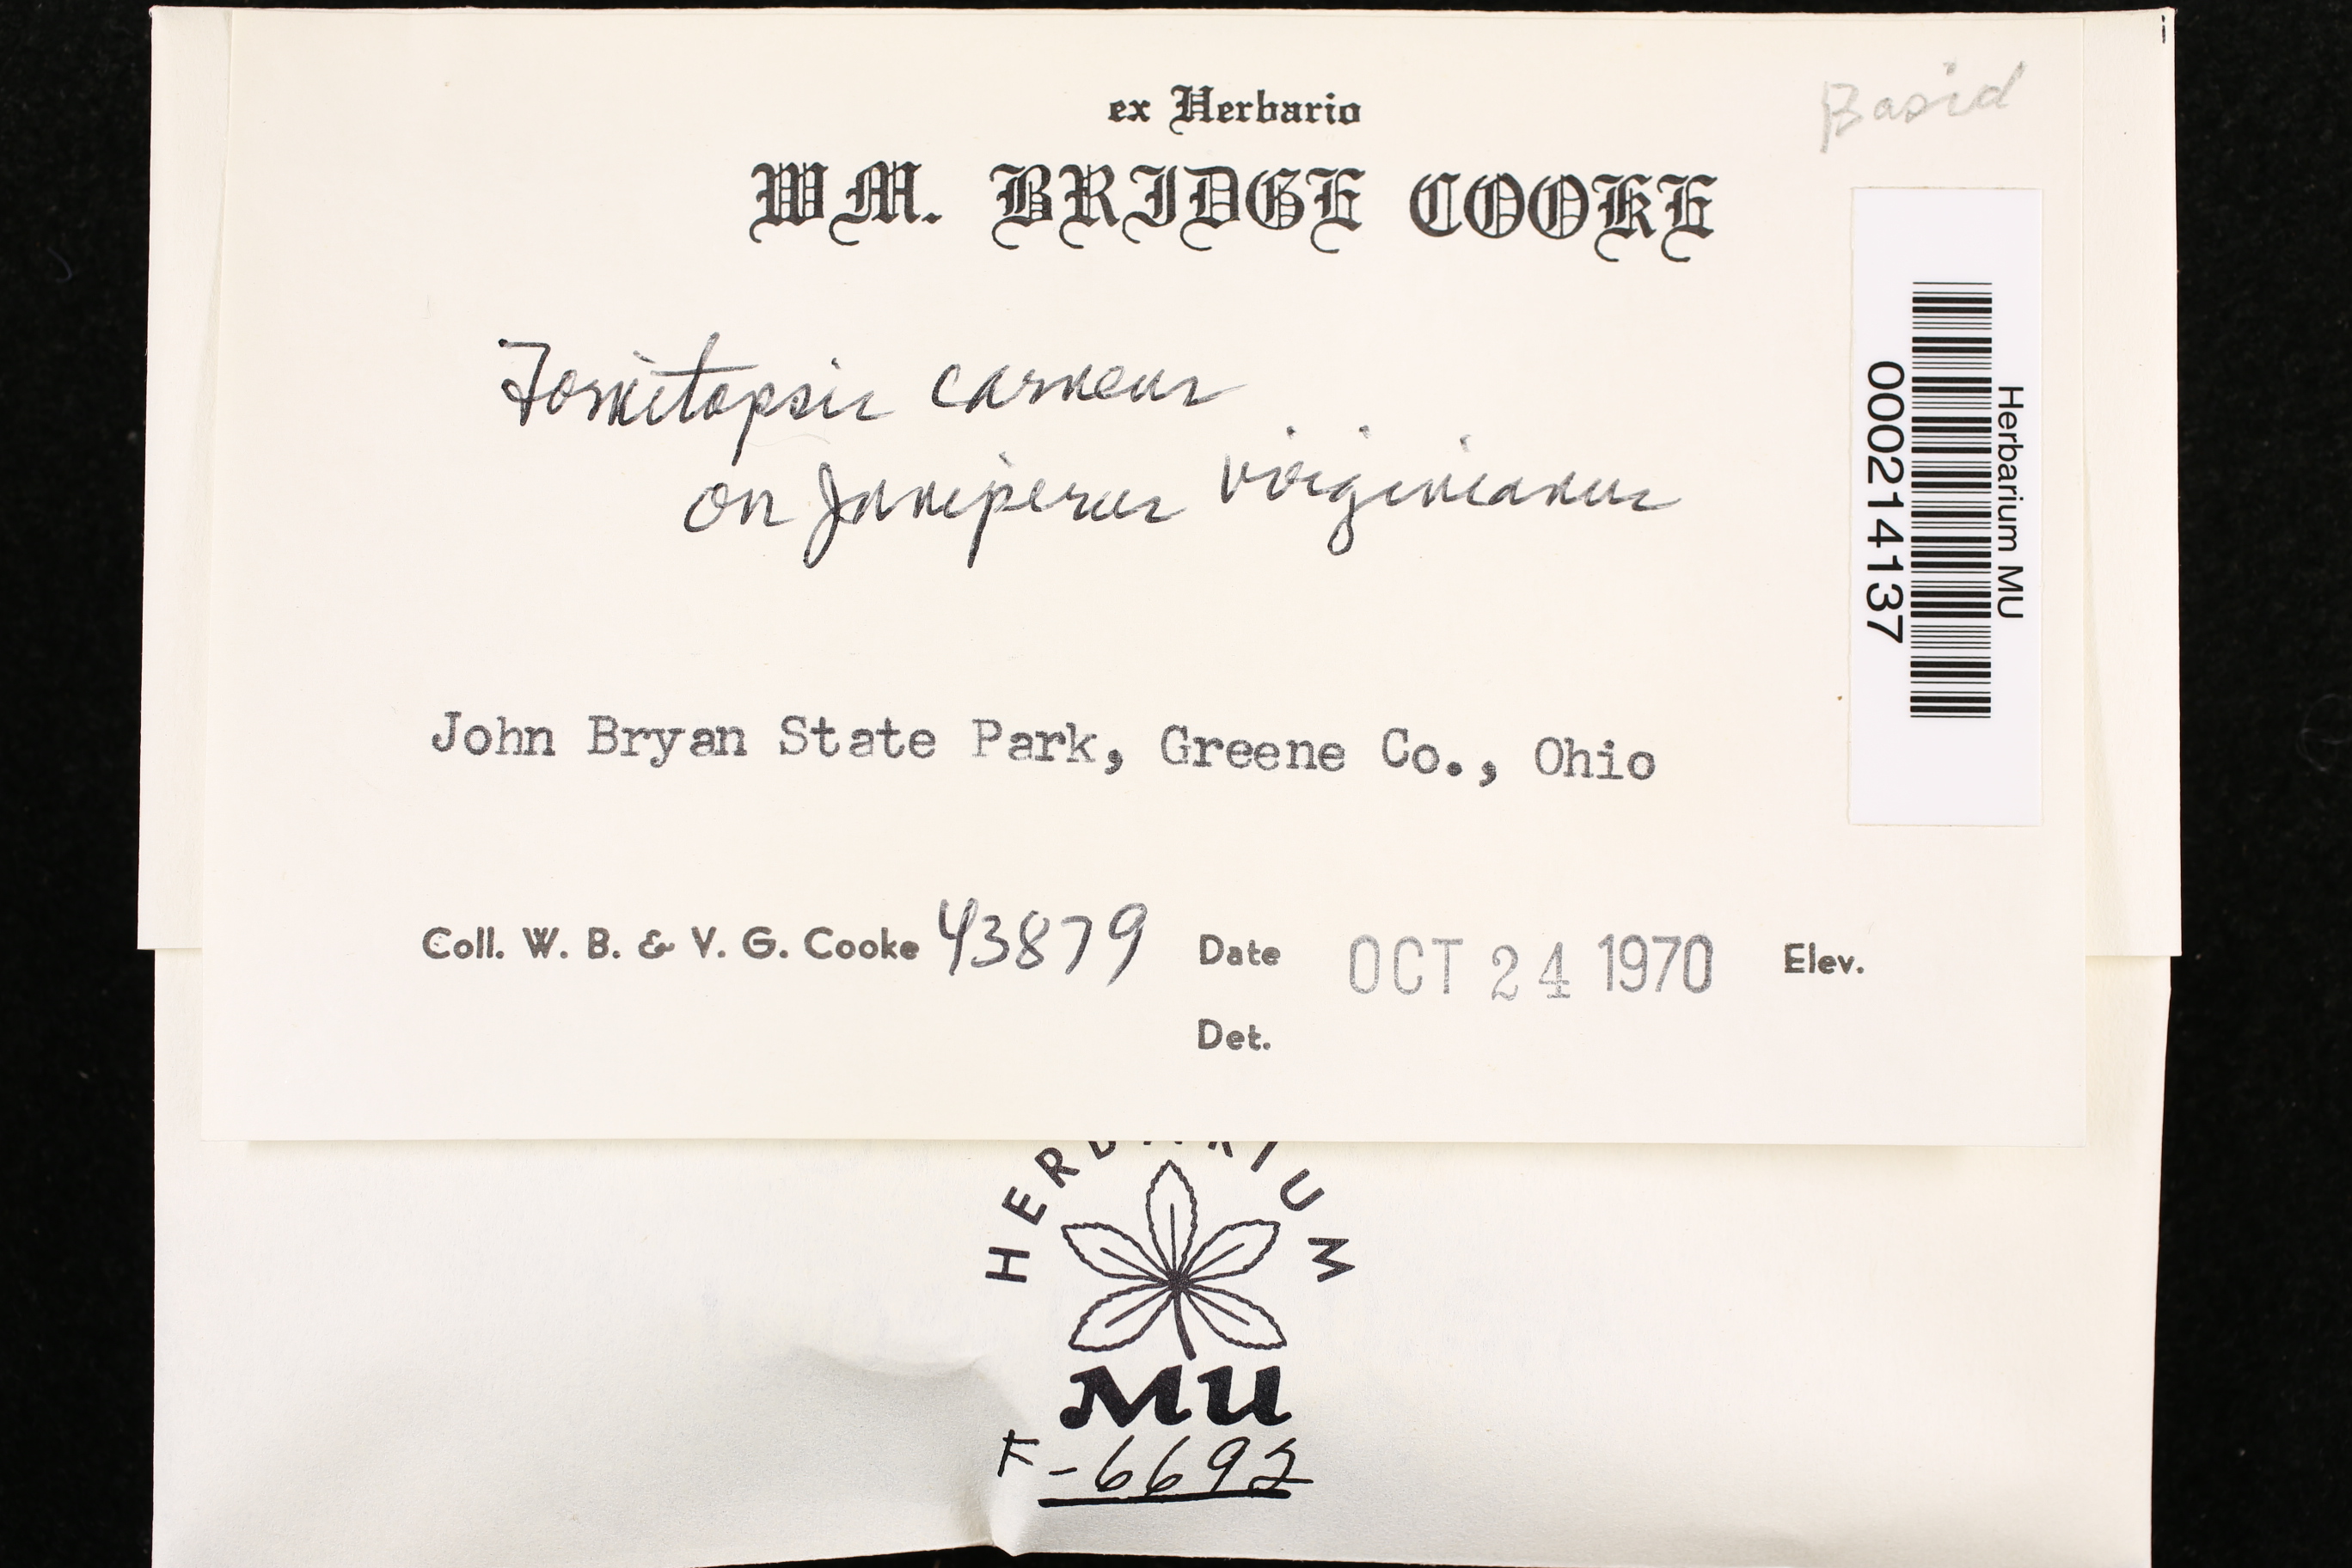 Basid
ex Herbario
WM. BRIDGE COOKE
Fomitopsis carneus
on Juniperus virginianus
John Bryan State Park, Greene Co., Ohio
Coll. W. B. & V. G. Cooke 43879 Date OCT 24 1970 Elev.
Det.
Herbarium MU
000214137
HERBARIUM
MU
F-6692